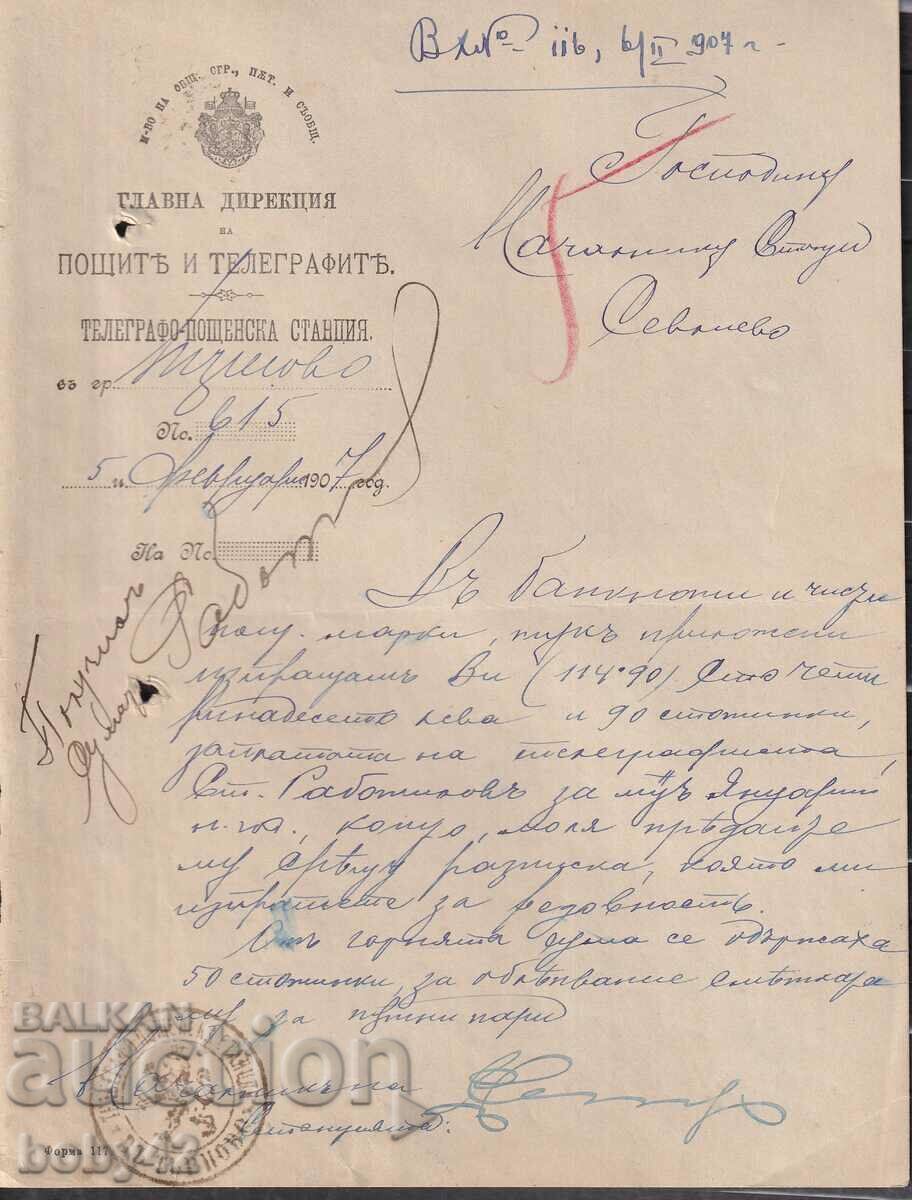 Вх № 116, 6/II 907 г.
М-ВО НА ОБЩ. СГР., ПѪТ. И СЪОБЩ.
ГЛАВНА ДИРЕКЦИЯ
НА
ПОЩИТѢ И ТЕЛЕГРАФИТѢ.
ТЕЛЕГРАФО-ПОЩЕНСКА СТАНЦИЯ.
въ гр. Търново
No. 615
5 и февруари 1907 год.
На No.
Господину
Началнику Станция
Севлиево
Въ банкноти и
марки, тукъ приложени
изпращамъ Ви (114·90) Сто чети
ринадесеть лева и 90 стотинки,
заплатата на телеграфиста
Ст. Работиловъ за м-цъ Януарий
н. год., които, моля прѣдайте
му срѣщу разписка, която ми
изпратете за редовность.
Отъ горнята сума се одържаха
50 стотинки, за облѣпвание смѣтката
му за пѫтни пари
Началникъ на
Станцията:
Получилъ
сумата
Форма 117
BALKAN
auction
boby42